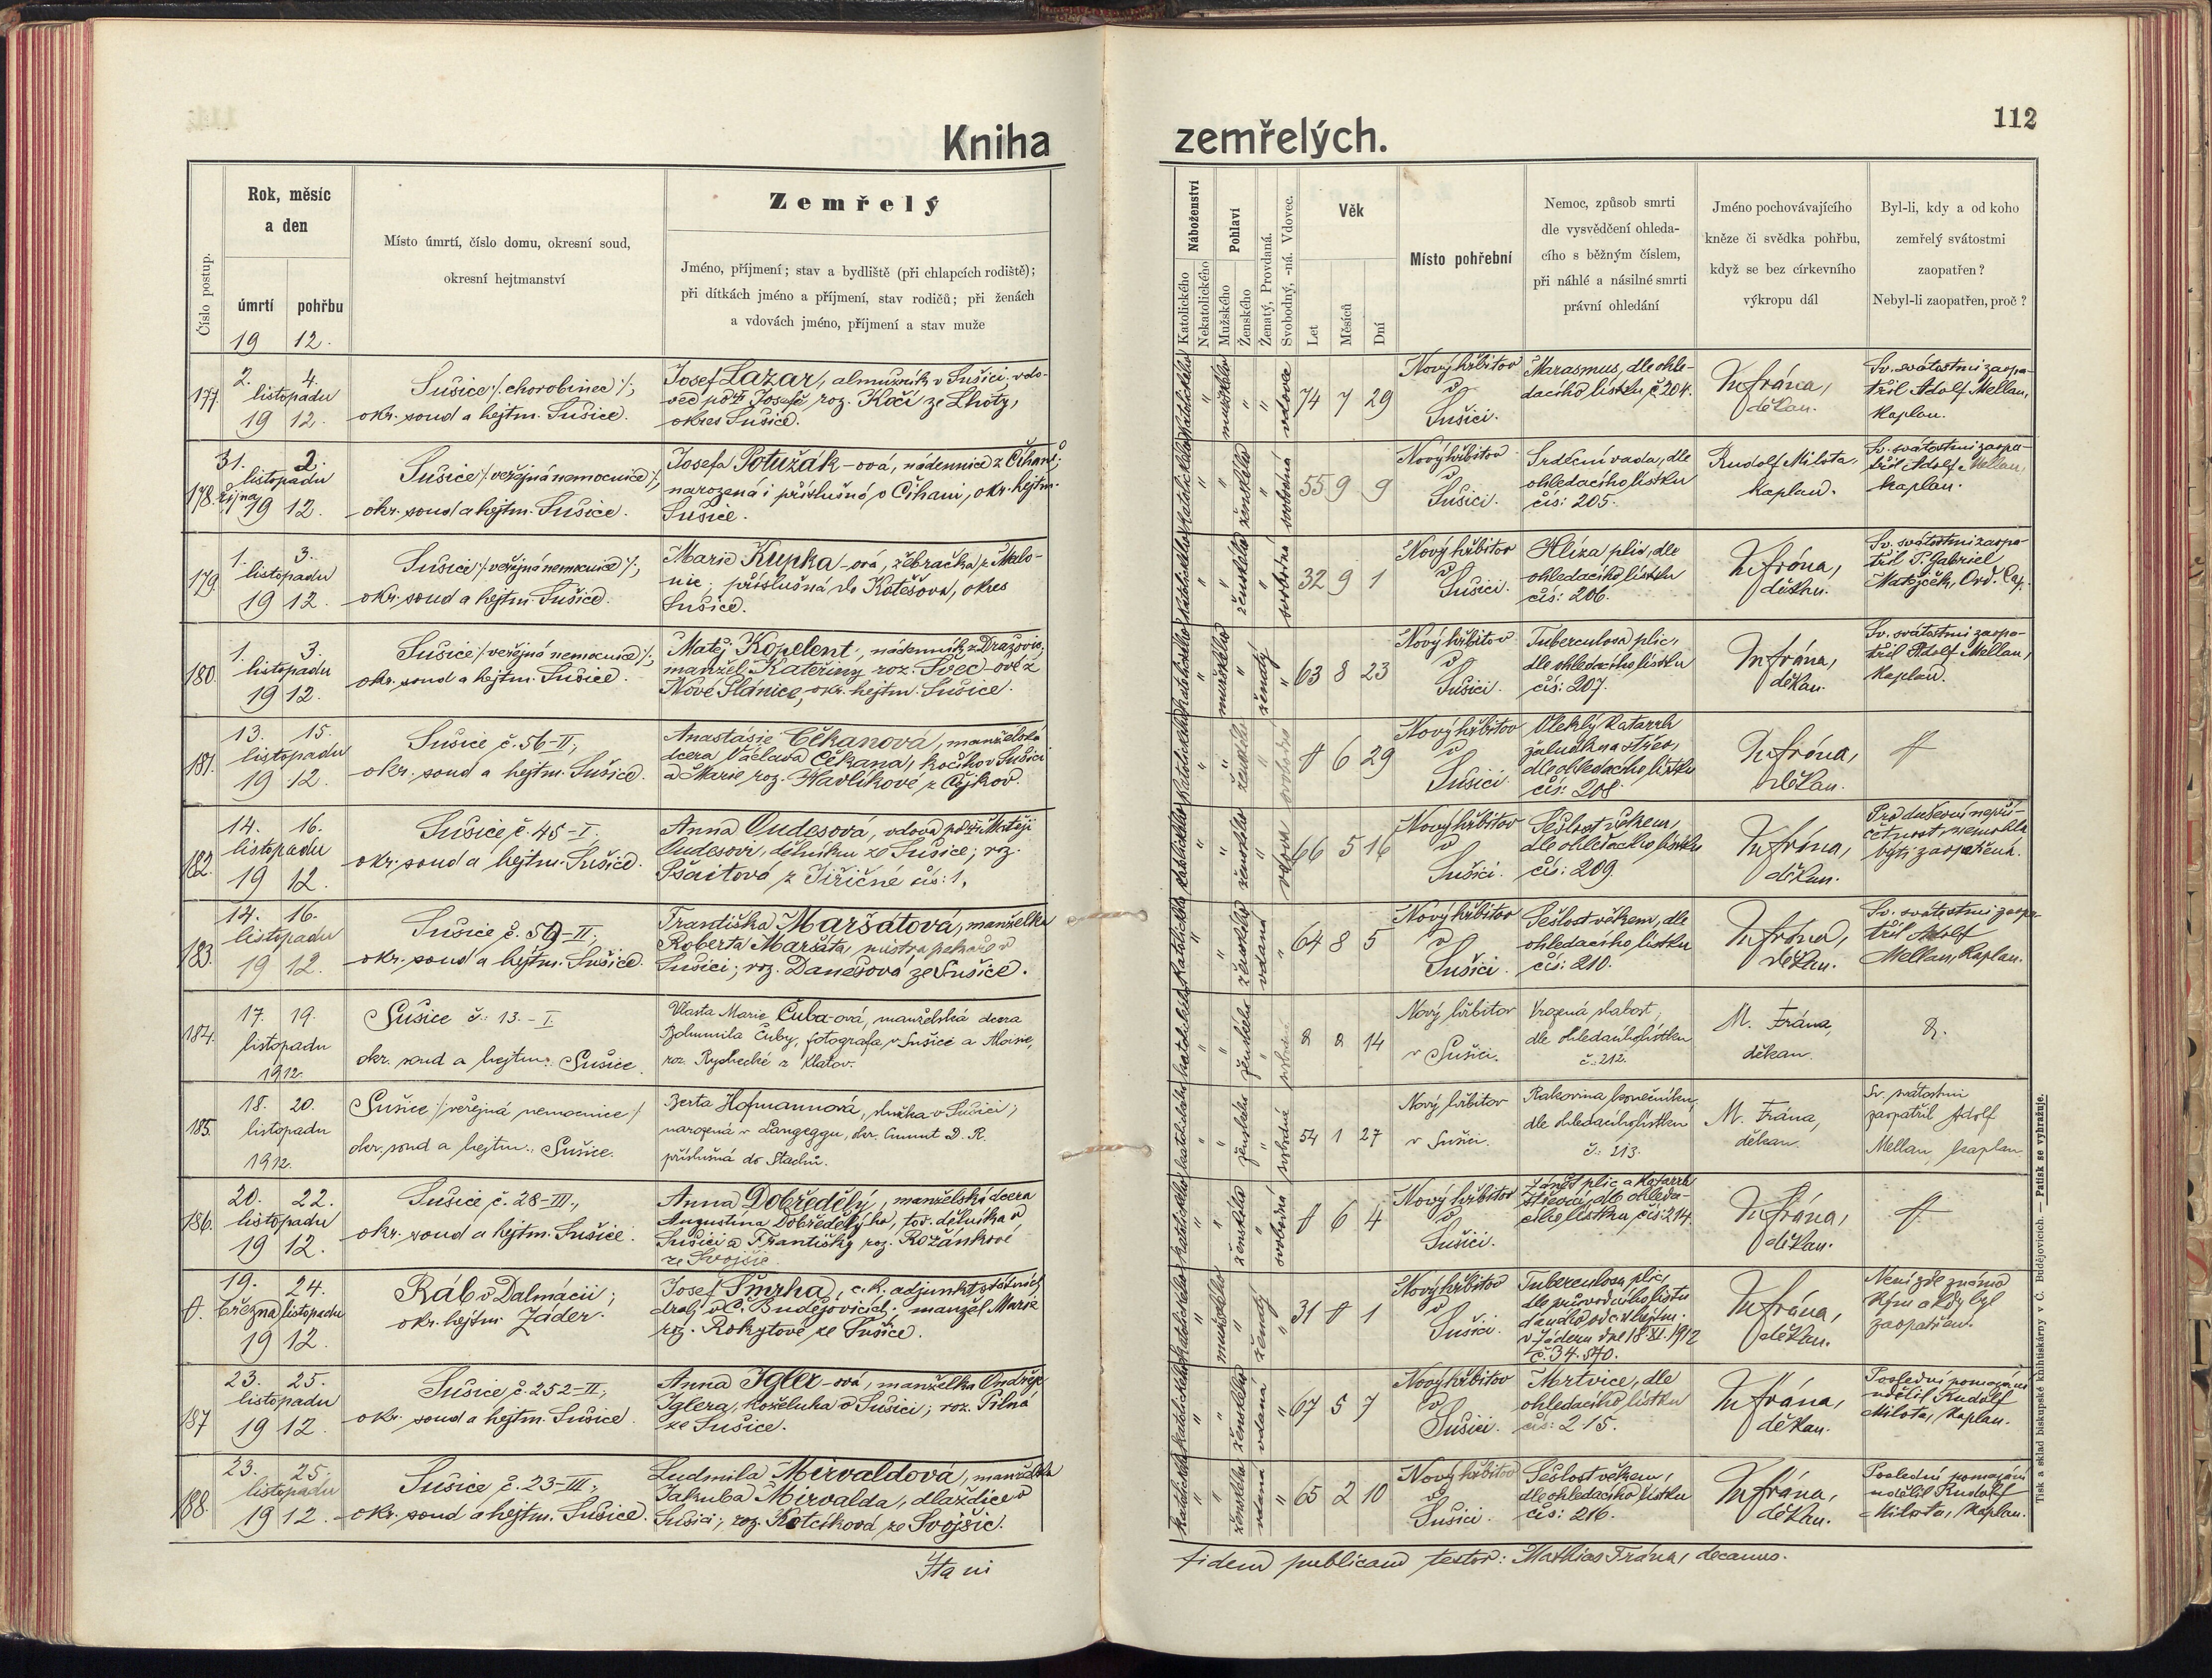 Kniha
zemřelých.
112
Číslo postup.
Rok, měsíc
a den
úmrtí
pohřbu
19 12.
Místo úmrtí, číslo domu, okresní soud,
okresní hejtmanství
Zemřelý
Jméno, příjmení; stav a bydliště (při chlapcích rodiště);
při dítkách jméno a příjmení, stav rodičů; při ženách
a vdovách jméno, příjmení a stav muže
Náboženství
Katolického
Nekatolického
Pohlaví
Mužského
Ženského
Ženatý, Provdaná.
Svobodný, -ná. Vdovec.
Věk
Let
Měsíců
Dní
Místo pohřební
Nemoc, způsob smrti
dle vysvědčení ohleda-
cího s běžným číslem,
při náhlé a násilné smrti
právní ohledání
Jméno pochovávajícího
kněze či svědka pohřbu,
když se bez církevního
výkropu dál
Byl-li, kdy a od koho
zemřelý svátostmi
zaopatřen?
Nebyl-li zaopatřen, proč?
177.
2. 4.
listopadu
19 12.
Sušice /: chorobinec :/;
okr. soud a hejtm. Sušice.
Josef Lazar, almužník v Sušici, vdo-
vec po † Josefě roz. Kočí ze Lhoty,
okres Sušice.
katolického
mužského
vdovec
74 7 29
Nový hřbitov
v
Sušici.
Marasmus, dle ohle-
dacího lístku č. 204.
M. Frána,
děkan.
Sv. svátostmi zaopa-
třil Adolf Mellan,
kaplan.
178.
31. 2.
listopadu
října
19 12.
Sušice /: veřejná nemocnice :/;
okr. soud a hejtm. Sušice.
Josefa Potužák-ová, nádennice z Číhaně;
narozená i příslušná v Číhani, okr. hejtm.
Sušice.
katolického
ženského
svobodná
55 9 9
Nový hřbitov
v
Sušici.
Srdeční vada, dle
ohledacího lístku
čís: 205.
Rudolf Milota,
kaplan.
Sv. svátostmi zaopa-
třil Adolf Mellan,
kaplan.
179.
1. 3.
listopadu
19 12.
Sušice /: veřejná nemocnice :/;
okr. soud a hejtm. Sušice.
Marie Kupka-ová, žebračka z Malo-
nic; příslušná do Kotěšova, okres
Sušice.
katolického
ženského
svobodná
32 9 1
Nový hřbitov
v
Sušici.
Hlíza plic, dle
ohledacího lístku
čís: 206.
M. Frána,
děkan.
Sv. svátostmi zaopa-
třil P. Gabriel
Matějček, Ord. Cap.
180.
1. 3.
listopadu
19 12.
Sušice /: veřejná nemocnice :/;
okr. soud a hejtm. Sušice.
Matěj Kopelent, nádenník z Dražovic,
manžel Kateřiny roz. Švec-ové z
Nové Stánice, okr. hejtm. Sušice.
katolického
mužského
ženatý
63 8 23
Nový hřbitov
v
Sušici.
Tuberculosa plic,
dle ohledacího lístku
čís: 207.
M. Frána,
děkan.
Sv. svátostmi zaopa-
třil Adolf Mellan,
kaplan.
181.
13. 15.
listopadu
19 12.
Sušice č. 56-II.,
okr. soud a hejtm. Sušice.
Anastásie Čekanová, manželská
dcera Václava Čekana, kočího v Sušici
a Marie roz. Havlíkové z Čejkov.
katolického
ženského
svobodná
6 29
Nový hřbitov
v
Sušici.
Vleklý katarrh
žaludku a střev,
dle ohledacího lístku
čís: 208
M. Frána,
děkan.
182.
14. 16.
listopadu
19 12.
Sušice č. 45-I.
okr. soud a hejtm. Sušice.
Anna Oudesová, vdova po † Matěji
Oudesovi, dělníku ze Sušice; roz.
z Jiřičné čís: 1.
katolického
ženského
vdova
66 5 16
Nový hřbitov
v
Sušici.
Sešlost věkem,
dle ohledacího lístku
čís: 209.
M. Frána,
děkan.
Pro duševní nepří-
četnost nemohla
býti zaopatřena.
183.
14. 16.
listopadu
19 12.
Sušice č. 59-II.;
okr. soud a hejtm. Sušice.
Františka Maršátová, manželka
Roberta Maršáta, mistra pekaře v
Sušici; roz. Danešová ze Sušice.
katolického
ženského
vdaná
64 8 5
Nový hřbitov
v
Sušici.
Sešlost věkem, dle
ohledacího lístku
čís: 210.
M. Frána,
děkan.
Sv. svátostmi zaopa-
třil Adolf
Mellan, kaplan.
184.
17. 19.
listopadu
1912.
Sušice č.: 13.-I.
okr. soud a hejtm. Sušice.
Vlasta Marie Čuba-ová, manželská dcera
Bohumila Čuby, fotografa v Sušici a Marie,
roz. Rychecké z Klatov.
katolického
ženského
14
Nový hřbitov
v Sušici.
Vrozená slabost,
dle ohledacího lístku
č.: 212.
M. Frána,
děkan.
185.
18. 20.
listopadu
1912.
Sušice /veřejná nemocnice/
okr. soud a hejtm. Sušice.
Berta Hofmannová, služka v Sušici;
narozená v Langeggu, okr. Gmunt D. R.
příslušná do Stachů.
katolického
ženského
svobodná
54 1 27
Nový hřbitov
v Sušici.
Rakovina konečníku,
dle ohledacího lístku
č.: 213.
M. Frána,
děkan.
Sv. svátostmi
zaopatřil Adolf
Mellan, kaplan.
186.
20. 22.
listopadu
19 12.
Sušice č. 28-III.,
okr. soud a hejtm. Sušice.
Anna Dobředělý, manželská dcera
Augustina Dobředělýho, tov. dělníka v
Sušici a Františky roz. Rozánkové
ze Svojšic.
katolického
ženského
svobodná
6 4
Nový hřbitov
v
Sušici.
Zánět plic a katarrh
střevový, dle ohleda-
cího lístku čís: 214.
M. Frána,
děkan.
19. 24.
března listopadu
19 12.
Ráb v Dalmácii;
okr. hejtm. Zader.
Josef Šmrha, c. k. adjunkt státních
drah v Č. Budějovicích; manžel Marie
roz. Rokytové ze Sušice.
katolického
mužského
ženatý
31 1
Nový hřbitov
v
Sušici.
Tuberculosa plic,
dle průvodního listu
daného od c. k. hejtm.
v Zadern dne 18. XI. 1912
č. 34.570.
M. Frána,
děkan.
Není zde známo
kým a kdy byl
zaopatřen.
187
23. 25.
listopadu
19 12.
Sušice č. 252-II.,
okr. soud a hejtm. Sušice.
Anna Igler-ová, manželka Ondřeje
Iglera, koželuha v Sušici; roz. Pilná
ze Sušice.
katolického
ženského
vdaná
67 5 7
Nový hřbitov
v
Sušici.
Mrtvice, dle
ohledacího lístku
čís: 215.
M. Frána,
děkan.
Poslední pomazání
udělil Rudolf
Milota, kaplan.
188.
23. 25.
listopadu
19 12.
Sušice č. 23-III.,
okr. soud a hejtm. Sušice.
Ludmila Mirvaldová, manželka
Jakuba Mirvalda, dlaždiče v
Sušici; roz. Kotcíková ze Svojšic.
katolického
ženského
vdaná
65 2 10
Nový hřbitov
v
Sušici.
Sešlost věkem,
dle ohledacího lístku
čís: 216.
M. Frána,
děkan.
Poslední pomazání
udělil Rudolf
Milota, kaplan.
fidem publicam testor: Mathias Frána, decanus.
Tisk a sklad biskupské knihtiskárny v Č. Budějovicích. — Patisk se vyhražuje.